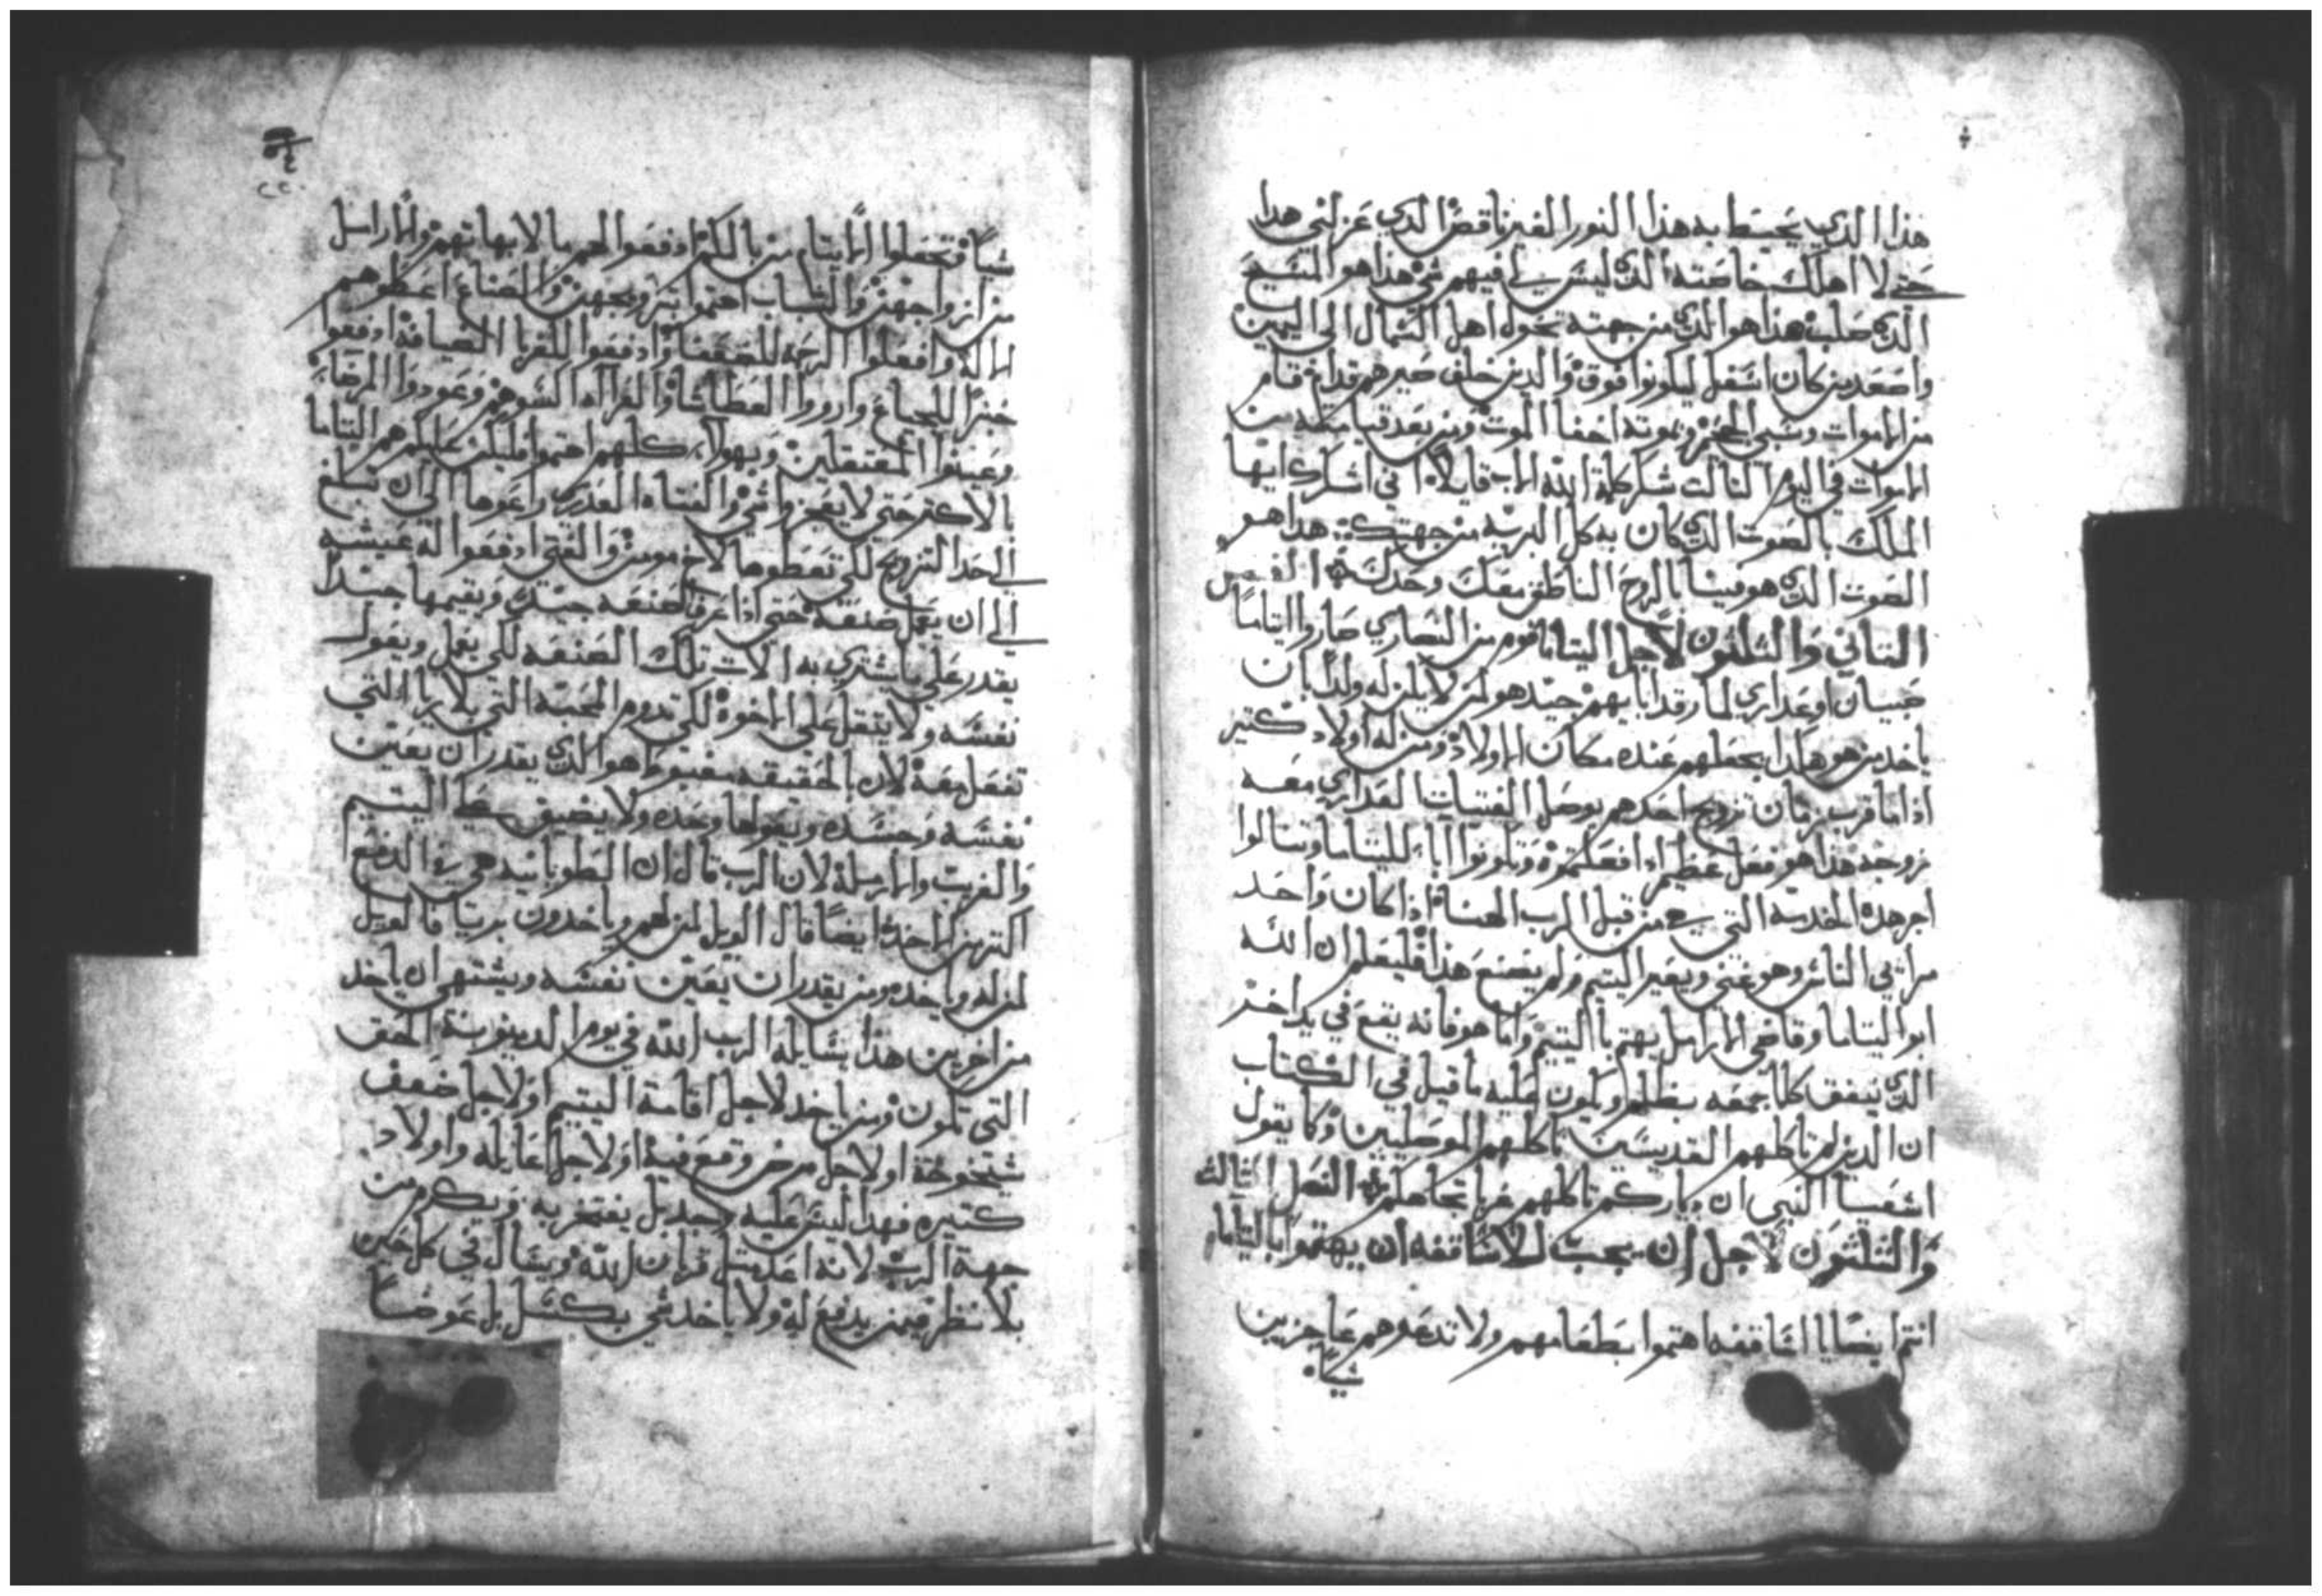 هذا الذي يحيط به هذا النور الغير ناقص الدي عزلني هدا
حتي لا اهلك خاصته الدي ليس لي فيهم شي هذا هو المسيح
الدي صلب هذا هو الدي من جهته تحول اهل الشمال الي اليمين
واصعد من كان اسفل ليكونوا فوق والدين خلف صيرهم قدام قام
من الاموات وسبي الجحيم وبموته اخفا الموت ومن بعد قيامته من
الاموات في اليوم التالت شكر كلمة الله الاب قايلا اني اشكرك ايها
الملك بالصوت الدي كان به كل البريه من جهتك هدا هو
الصوت الدي هو فينا بالروح الناطق معك وحدك الفصل
التاني والتلتون لاجل اليتاما قوم من النصاري صاروا ايتاما
صبيان او عداري لما رقد ابايهم جيد هو لمن لا يكن له ولد ان
ياخد من هو هكدا يجعلهم عنده مكان الاولاد ومن له اولاد كتير
اذا ما قرب زمان تزويج احدهم يوصل الفتيات العداري معه
زوجه هذا هو فعل عظيم اذا فعلتموه وتكونوا ابا لليتاما وتنالوا
اجر هده الخدمه التي هي من قبل الرب الهنا اذا كان واحد
مرايي الناس وهو غني ويعير اليتيم ولم يصنع هذا فليعلم ان الله
ابو اليتاما وقاضي الارامل يهتم باليتيم واما هو فانه يقع في يد اخر
الدي ينفق كلما جمعه بظلم ويكون عليه ما قيل في الكتاب
ان الدين لم تاكلهم القديسين تاكلهم الموصليين وكما يقول
اشعيا النبي ان دياركم تاكلهم غربا تجاهكم الفصل التالت
والتلتون لاجل ان يجب للاساقفه ان يهتموا باليتاما
انتم ايضا يا اساقفه اهتموا بطعامهم ولا تدعوهم عاجزين
شيا
شيا فتجعلوا الايتام من بالكم ادفعوا لهم ما لابهاتهم والارامل
من ازواجهن والشباب اهتموا بتزويجهن والصناع اعطوهم
اماله وافعلوا الرحمه للضعفا وادفعوا للغربا الضيافه ادفعوا
خبزا للجياع وارووا العطاشا والعراه اكسوهم وعودوا المرضا
وعينوا المعتقلين وبهولا كلهم اهتموا فليكن عملكم هم اليتاما
بالاكتر حتي لا يعجزوا شي والفتاه العدري راعوها الي ان تبلغ
الي حد التزويج لكي تعطوها لاخ مومن والفتي ادفعوا له عيشه
الي ان يعمل صنعه حتي اذا عرف الصنعه جيدا ويقيمها جيدا
يقدر علي ما يشتري به الات تلك الصنعه لكي يعمل ويعول
نفسه ولا يتقل علي الاخوه لكي تدوم المحبه التي بلا ريا التي
تفعل معه لان بالحقيقه مغبوط هو الدي يقدر ان يعين
نفسه وجسده ويعولها وحده ولا يضيق علي اليتيم
والغريب والارمله لان الرب قال ان الطوبانيه هي في الدفع
اكتر من الاخد ايضا قال الويل لمن لهم وياخدون بريا فالويل
لمن له وياخده ومن يقدر ان يعين نفسه ويشتهي ان ياخد
من اخرين هذا يسايله الرب الله في يوم الدينونة الحق
التي تكون ومن ياخد لاجل اقامة اليتيم او لاجل ضعف
شيخوخة او لاجل مرض وقع فيه او لاجل عايله واولاد
كتيره فهدا ليس عليه وجد بل يفتخر به ويكرم من
جهة الرب لانه اعد متل قربان لله ويسال في كل حين
بلا نظر فيمن يدفع له ولا ياخد شي بكسل بل عوضا